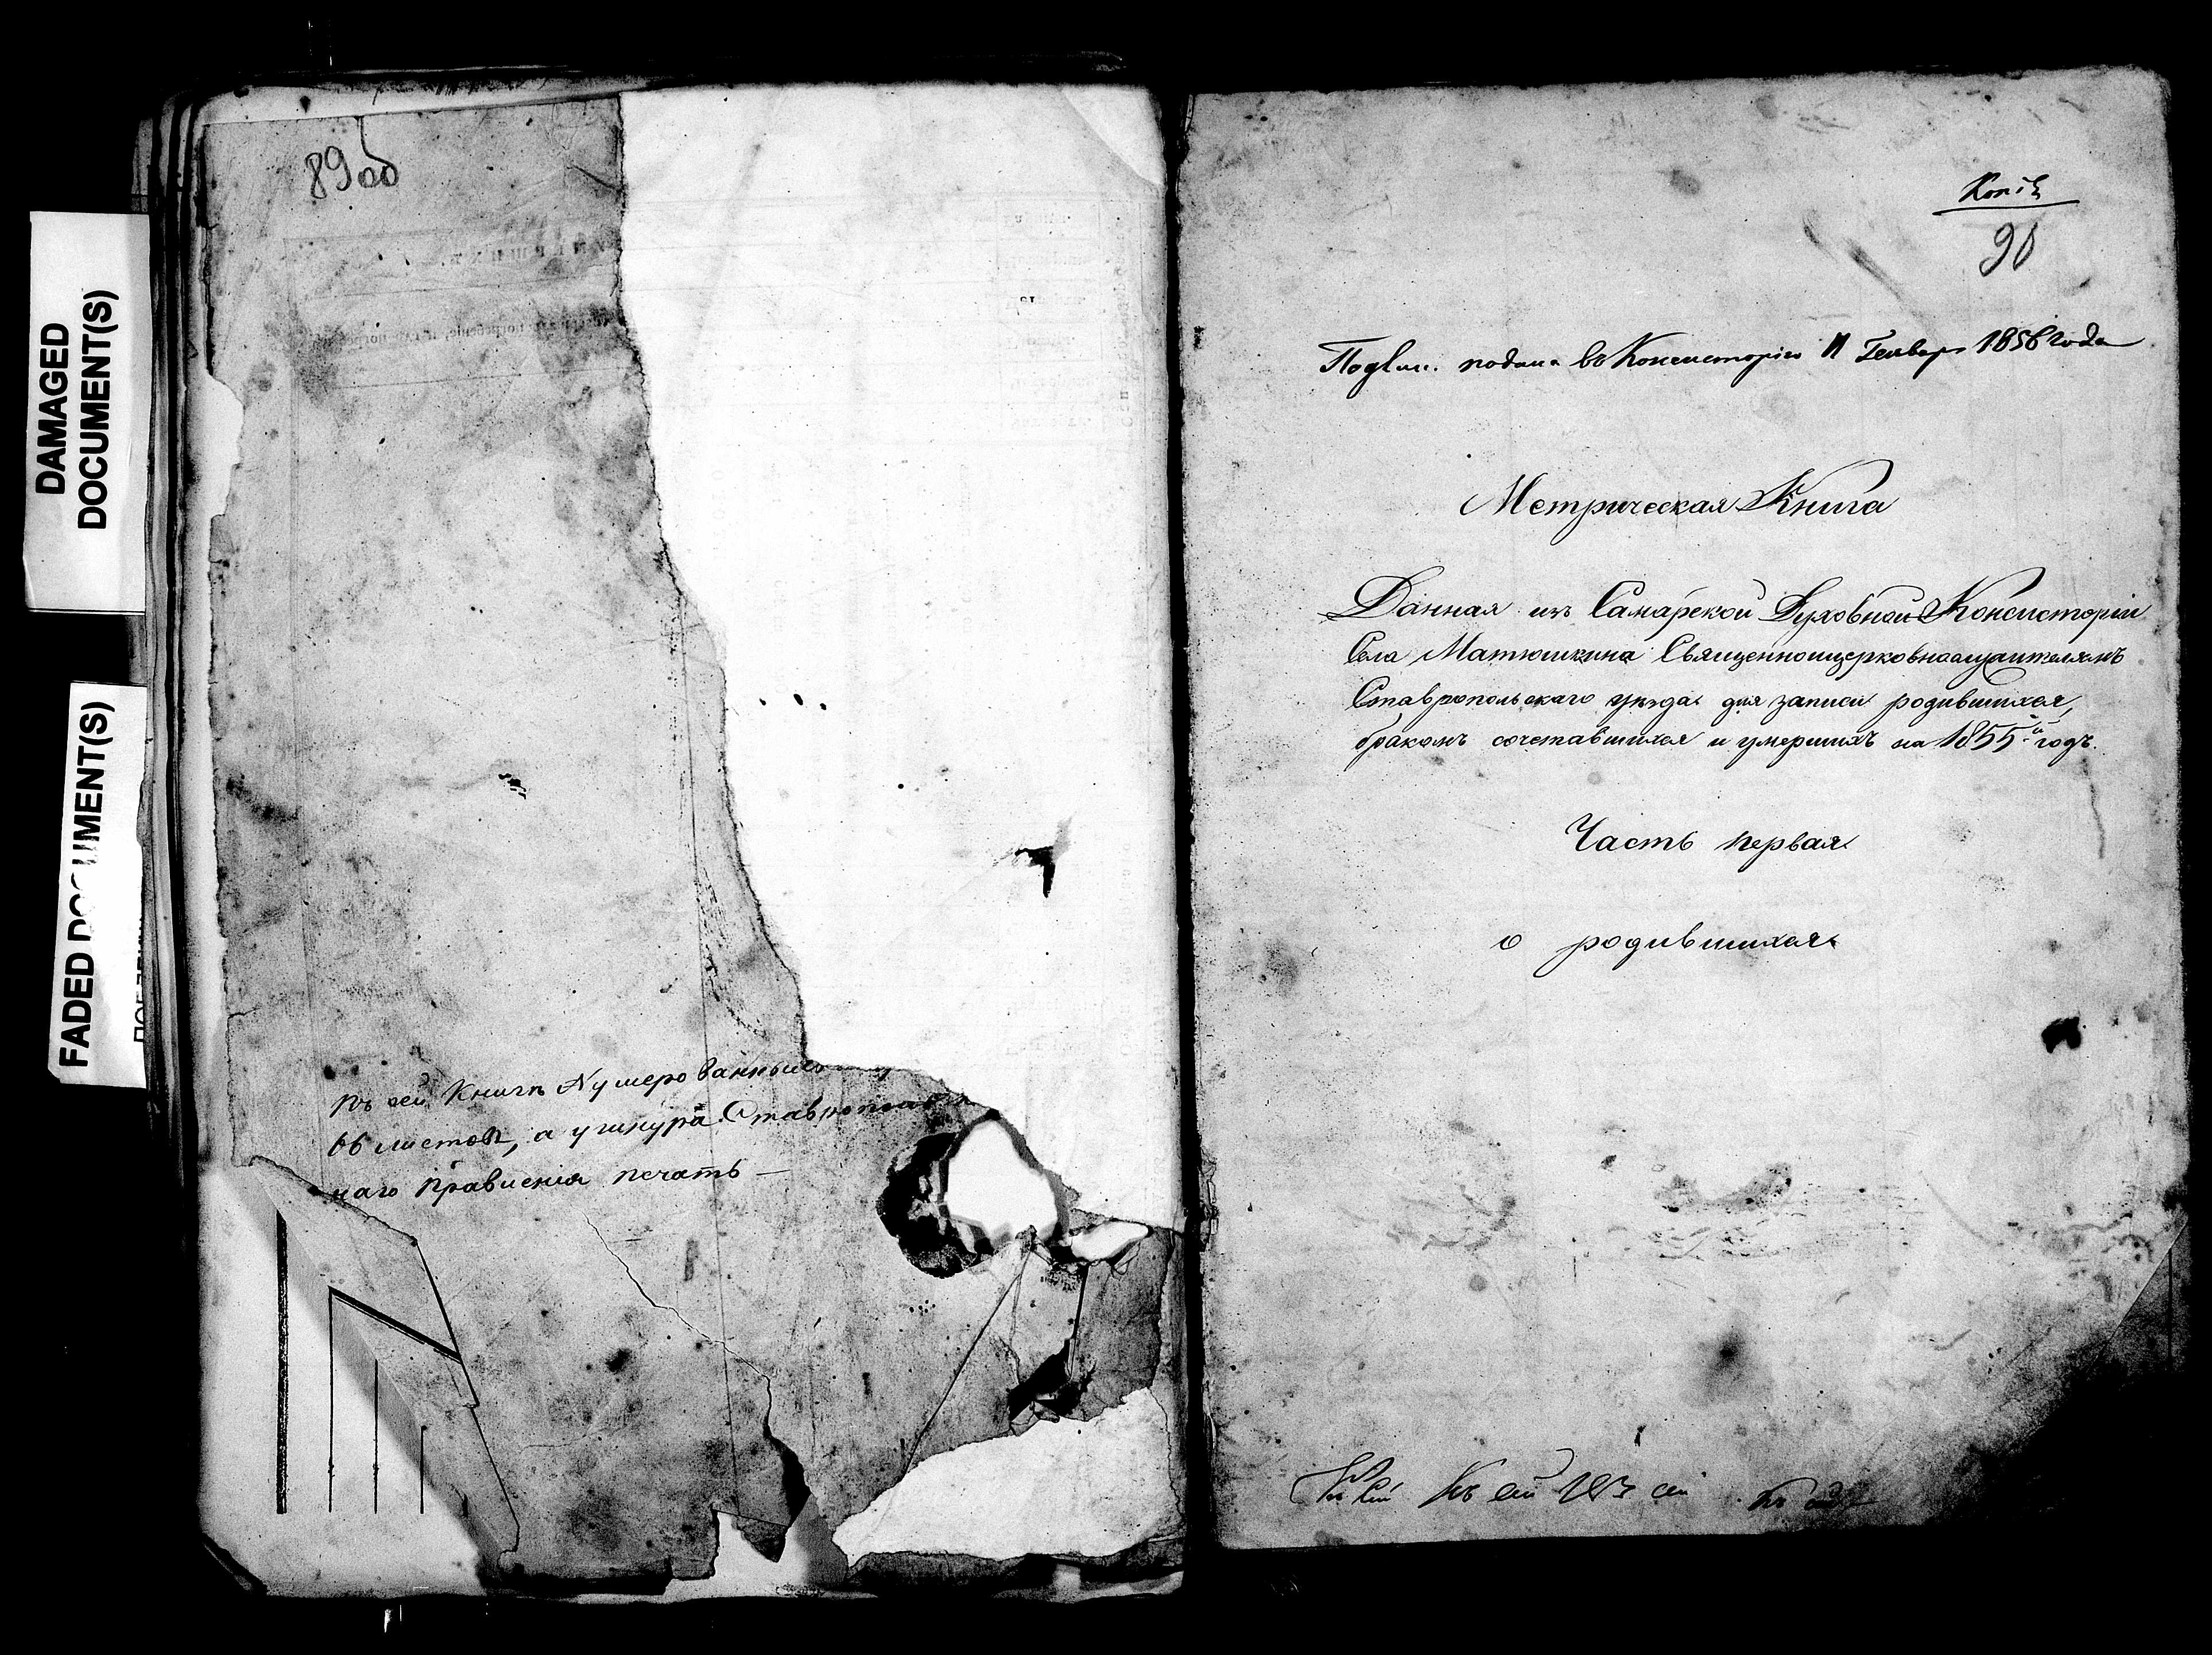 DAMAGED
DOCUMENT(S)
FADED DOCUMENT(S)
89об
Въ сей Книгѣ Нумерованныхъ
66 листовъ, а у шнура Ставрополь
наго Правленія печать —
Копія
90
подана въ Консисторію 11 Генваря 1856 года
Метрическая Книга
Данная изъ Самарской Духовной Консисторіи
Села Матюшкина Священноцерковнослужителямъ
Ставропольскаго уѣзда для записи родившихся,
бракомъ сочетавшихся и умершихъ на 1855й годъ.
Часть первая
о родившихся